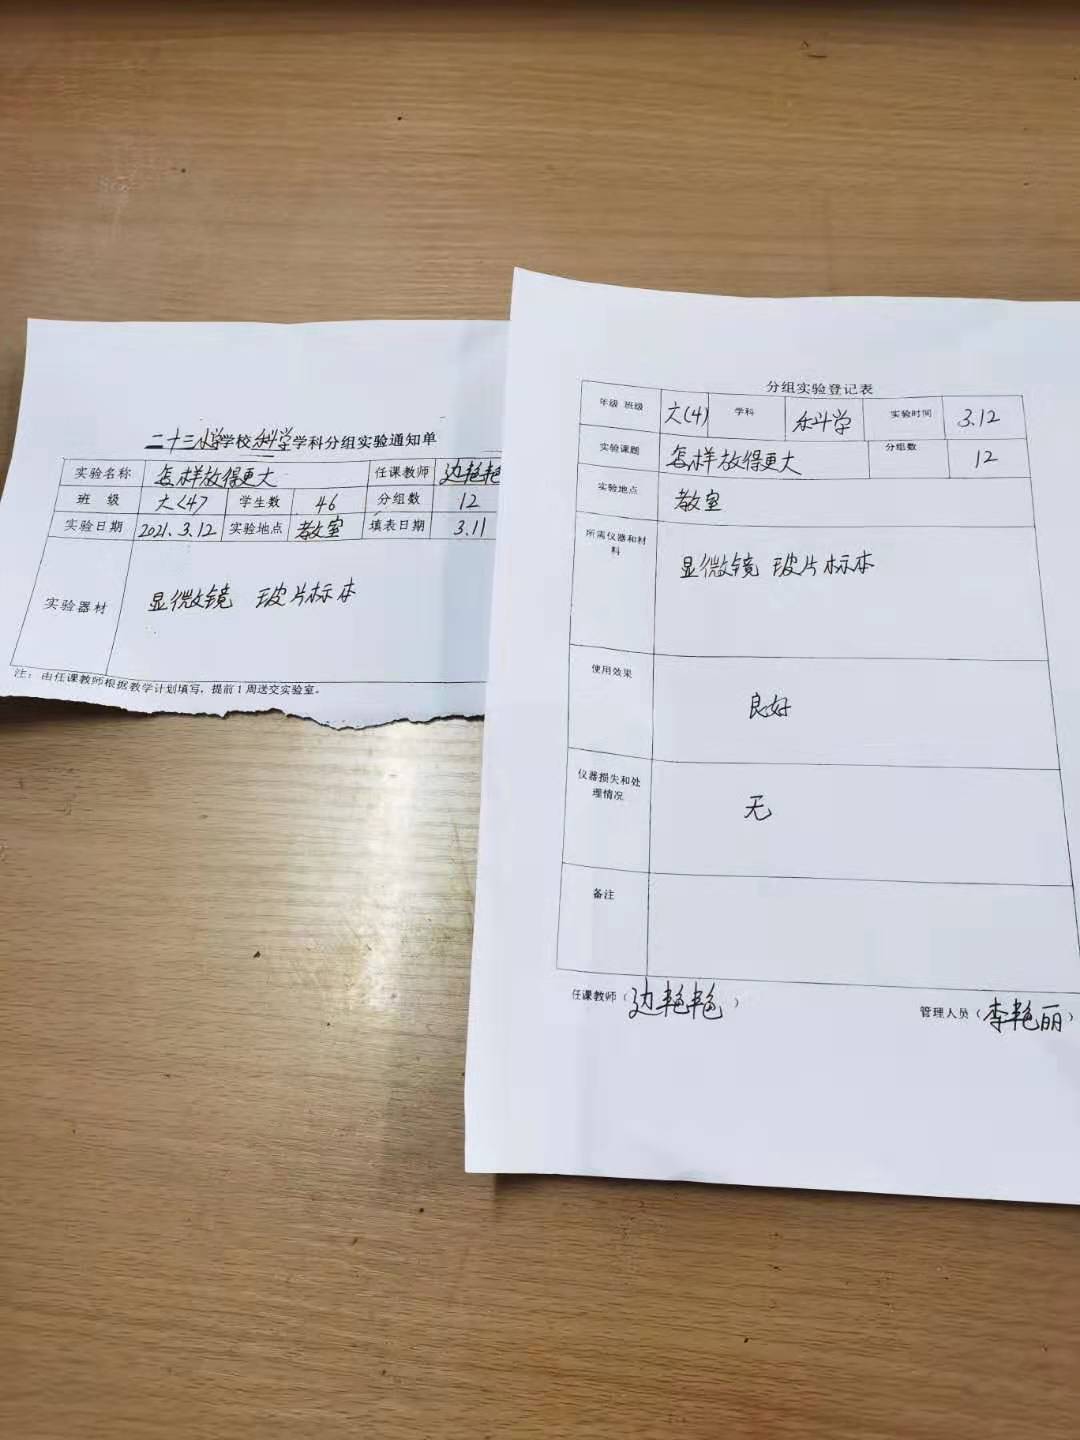 二十三小学学校科学学科分组实验通知单
实验名称 怎样放得更大 任课教师 边艳艳
班 级 六<4> 学生数 46 分组数 12
实验日期 2021.3.12 实验地点 教室 填表日期 3.11
实验器材 显微镜 玻片标本
注：由任课教师根据教学计划填写，提前1周送交实验室。
分组实验登记表
年级 班级 六(4) 学科 科学 实验时间 3.12
实验课题 怎样放得更大 分组数 12
实验地点 教室
所需仪器和材
料
显微镜 玻片标本
使用效果 良好
仪器损失和处
理情况
无
备注
任课教师（边艳艳）
管理人员（李艳丽）